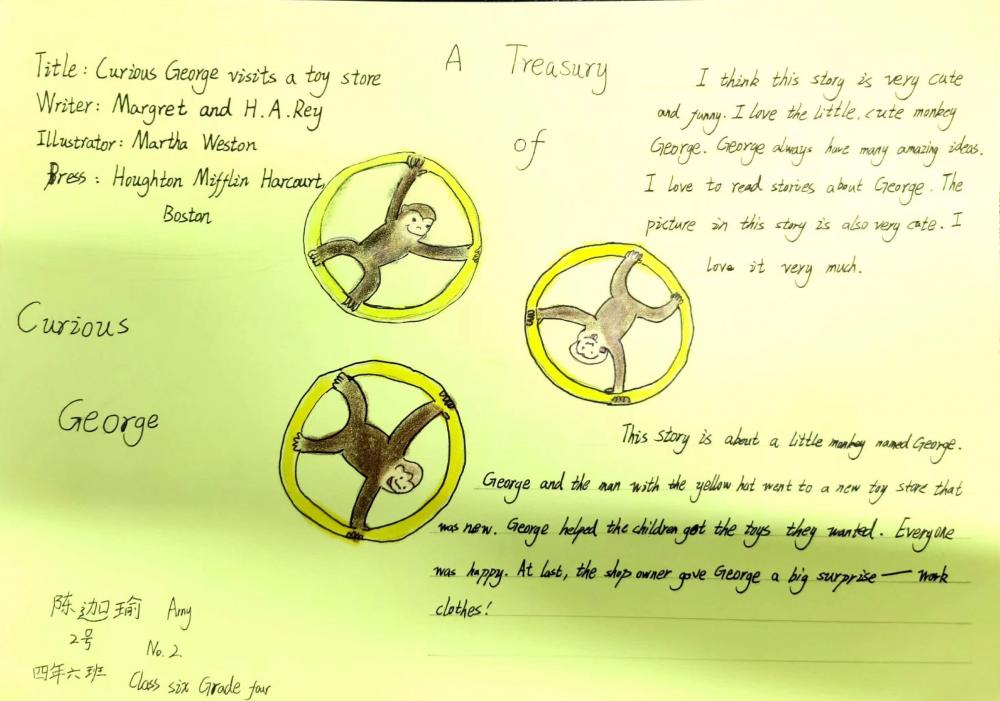 Title: Curious George visits a toy store
Writer: Margret and H.A.Rey
Illustrator: Martha Weston
Press: Houghton Mifflin Harcourt,
Boston
A Treasury
of
Curious
George
I think this story is very cute
and funny. I love the little, cute monkey
George. George always have many amazing ideas.
I love to read stories about George. The
picture in this story is also very cute. I
love it very much.
This story is about a little monkey named George.
George and the man with the yellow hat went to a new toy store that
was new. George helped the children got the toys they wanted. Everyone
was happy. At last, the shop owner gave George a big surprise — work
clothes!
陈迦瑜 Amy
2号 No.2
四年六班 Class six Grade four